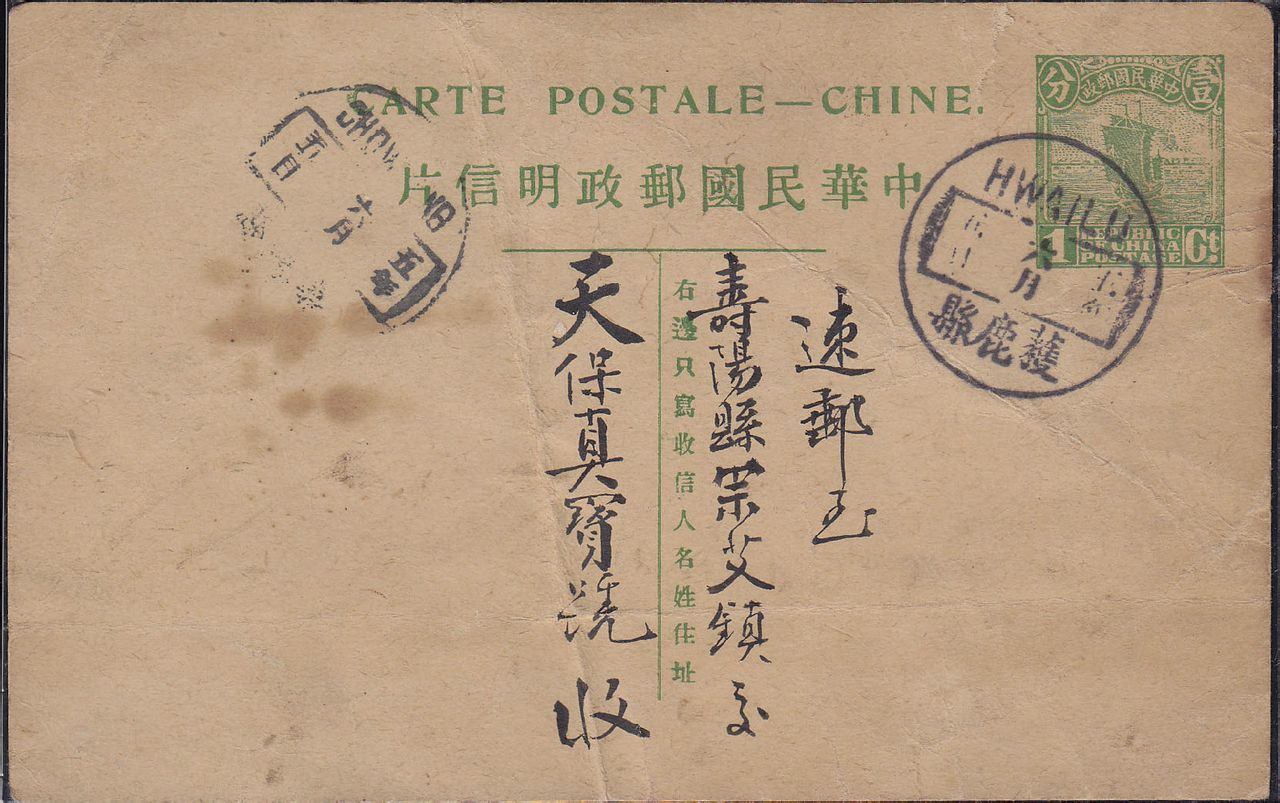 CARTE POSTALE — CHINE.
中華民國郵政明信片
分 中華民國郵政 壹
1 REPUBLIC OF CHINA POSTAGE Ct.
HWAILU
六月
獲鹿縣
SHOW
五日
六月
五年
速郵至
壽陽縣宗艾鎮交
右邊只寫收信人名姓住址
天保真寶號 收